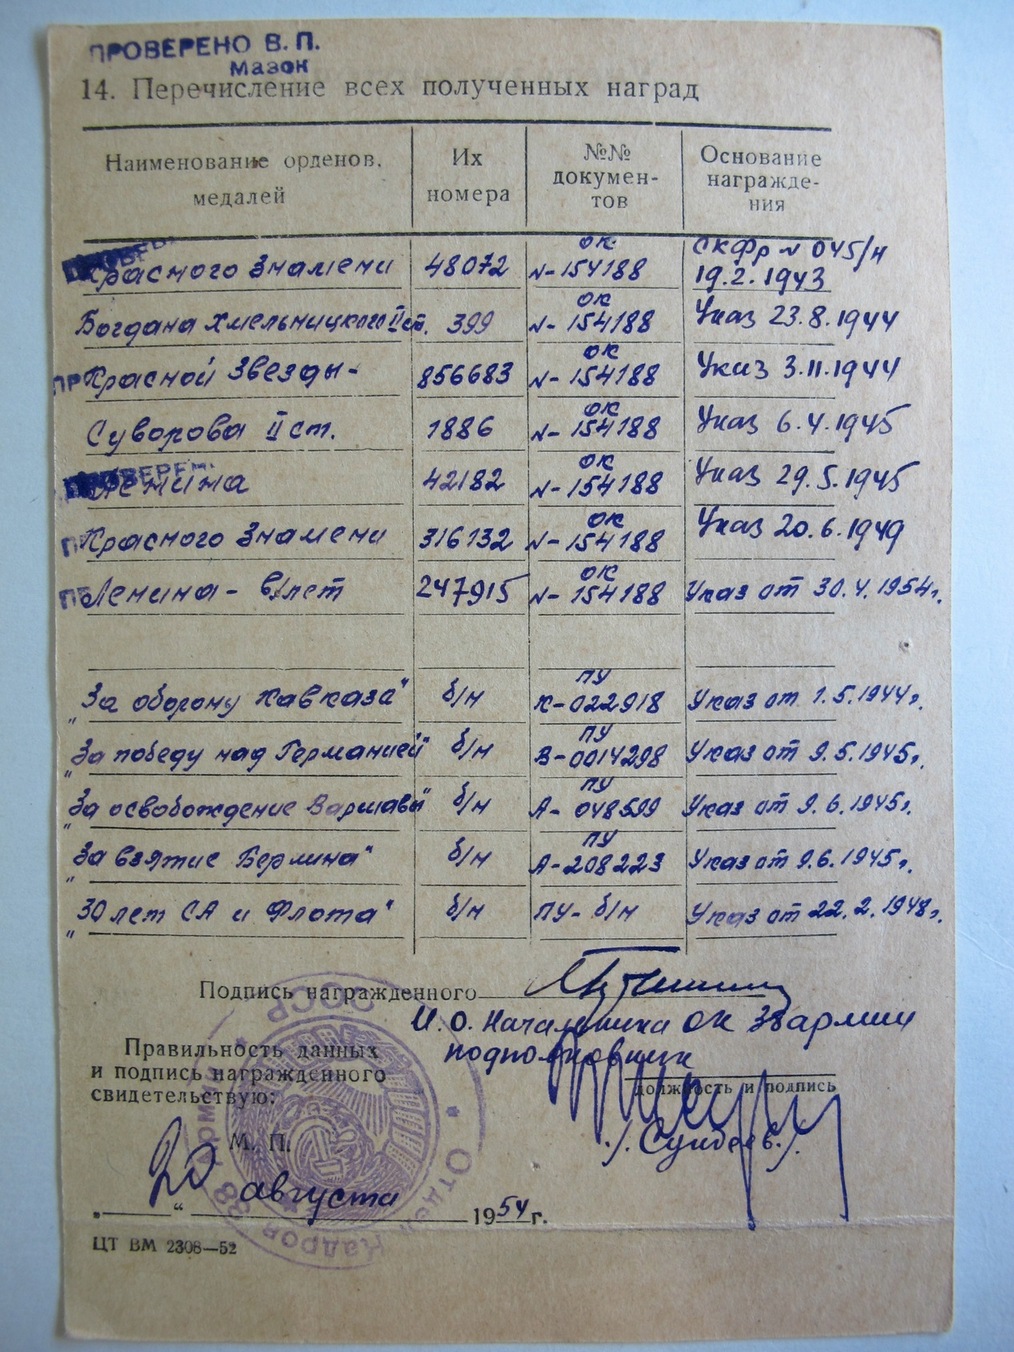 ПРОВЕРЕНО В. П.
Мазок
14. Перечисление всех полученных наград
Наименование орденов, медалей
Их номера
№№ докумен-тов
Основание награжде-ния
Красного Знамени 48072 ОК N-154188 СКФр N 045/н 19.2.1943
Богдана Хмельницкого II ст. 399 ОК N-154188 Указ 23.8.1944
Красной Звезды- 856683 ОК N-154188 Указ 3.11.1944
Суворова II ст. 1886 ОК N-154188 Указ 6.4.1945
Ленина 42182 ОК N-154188 Указ 29.5.1945
Красного Знамени 316132 ОК N-154188 Указ 20.6.1949
Ленина - в/лет 247915 ОК N-154188 Указ от 30.4.1954г.
"За оборону Кавказа" б/н ПУ К-022918 Указ от 1.5.1944г.
"За победу над Германией" б/н ПУ В-0014298 Указ от 9.5.1945г.
"За освобождение Варшавы" б/н ПУ А-048599 Указ от 9.6.1945г.
"За взятие Берлина" б/н ПУ А-208223 Указ от 9.6.1945г.
"30 лет СА и Флота" б/н ПУ-б/н Указ от 22.2.1948г.
Подпись награжденного
И. О. Начальника ОК
подполковник
Правильность данных
и подпись награжденного
свидетельствую:
должность и подпись
М. П.
20 августа 1954 г.
ЦТ ВМ 2308—52
СССР
Отдел Кадров 38 Армии